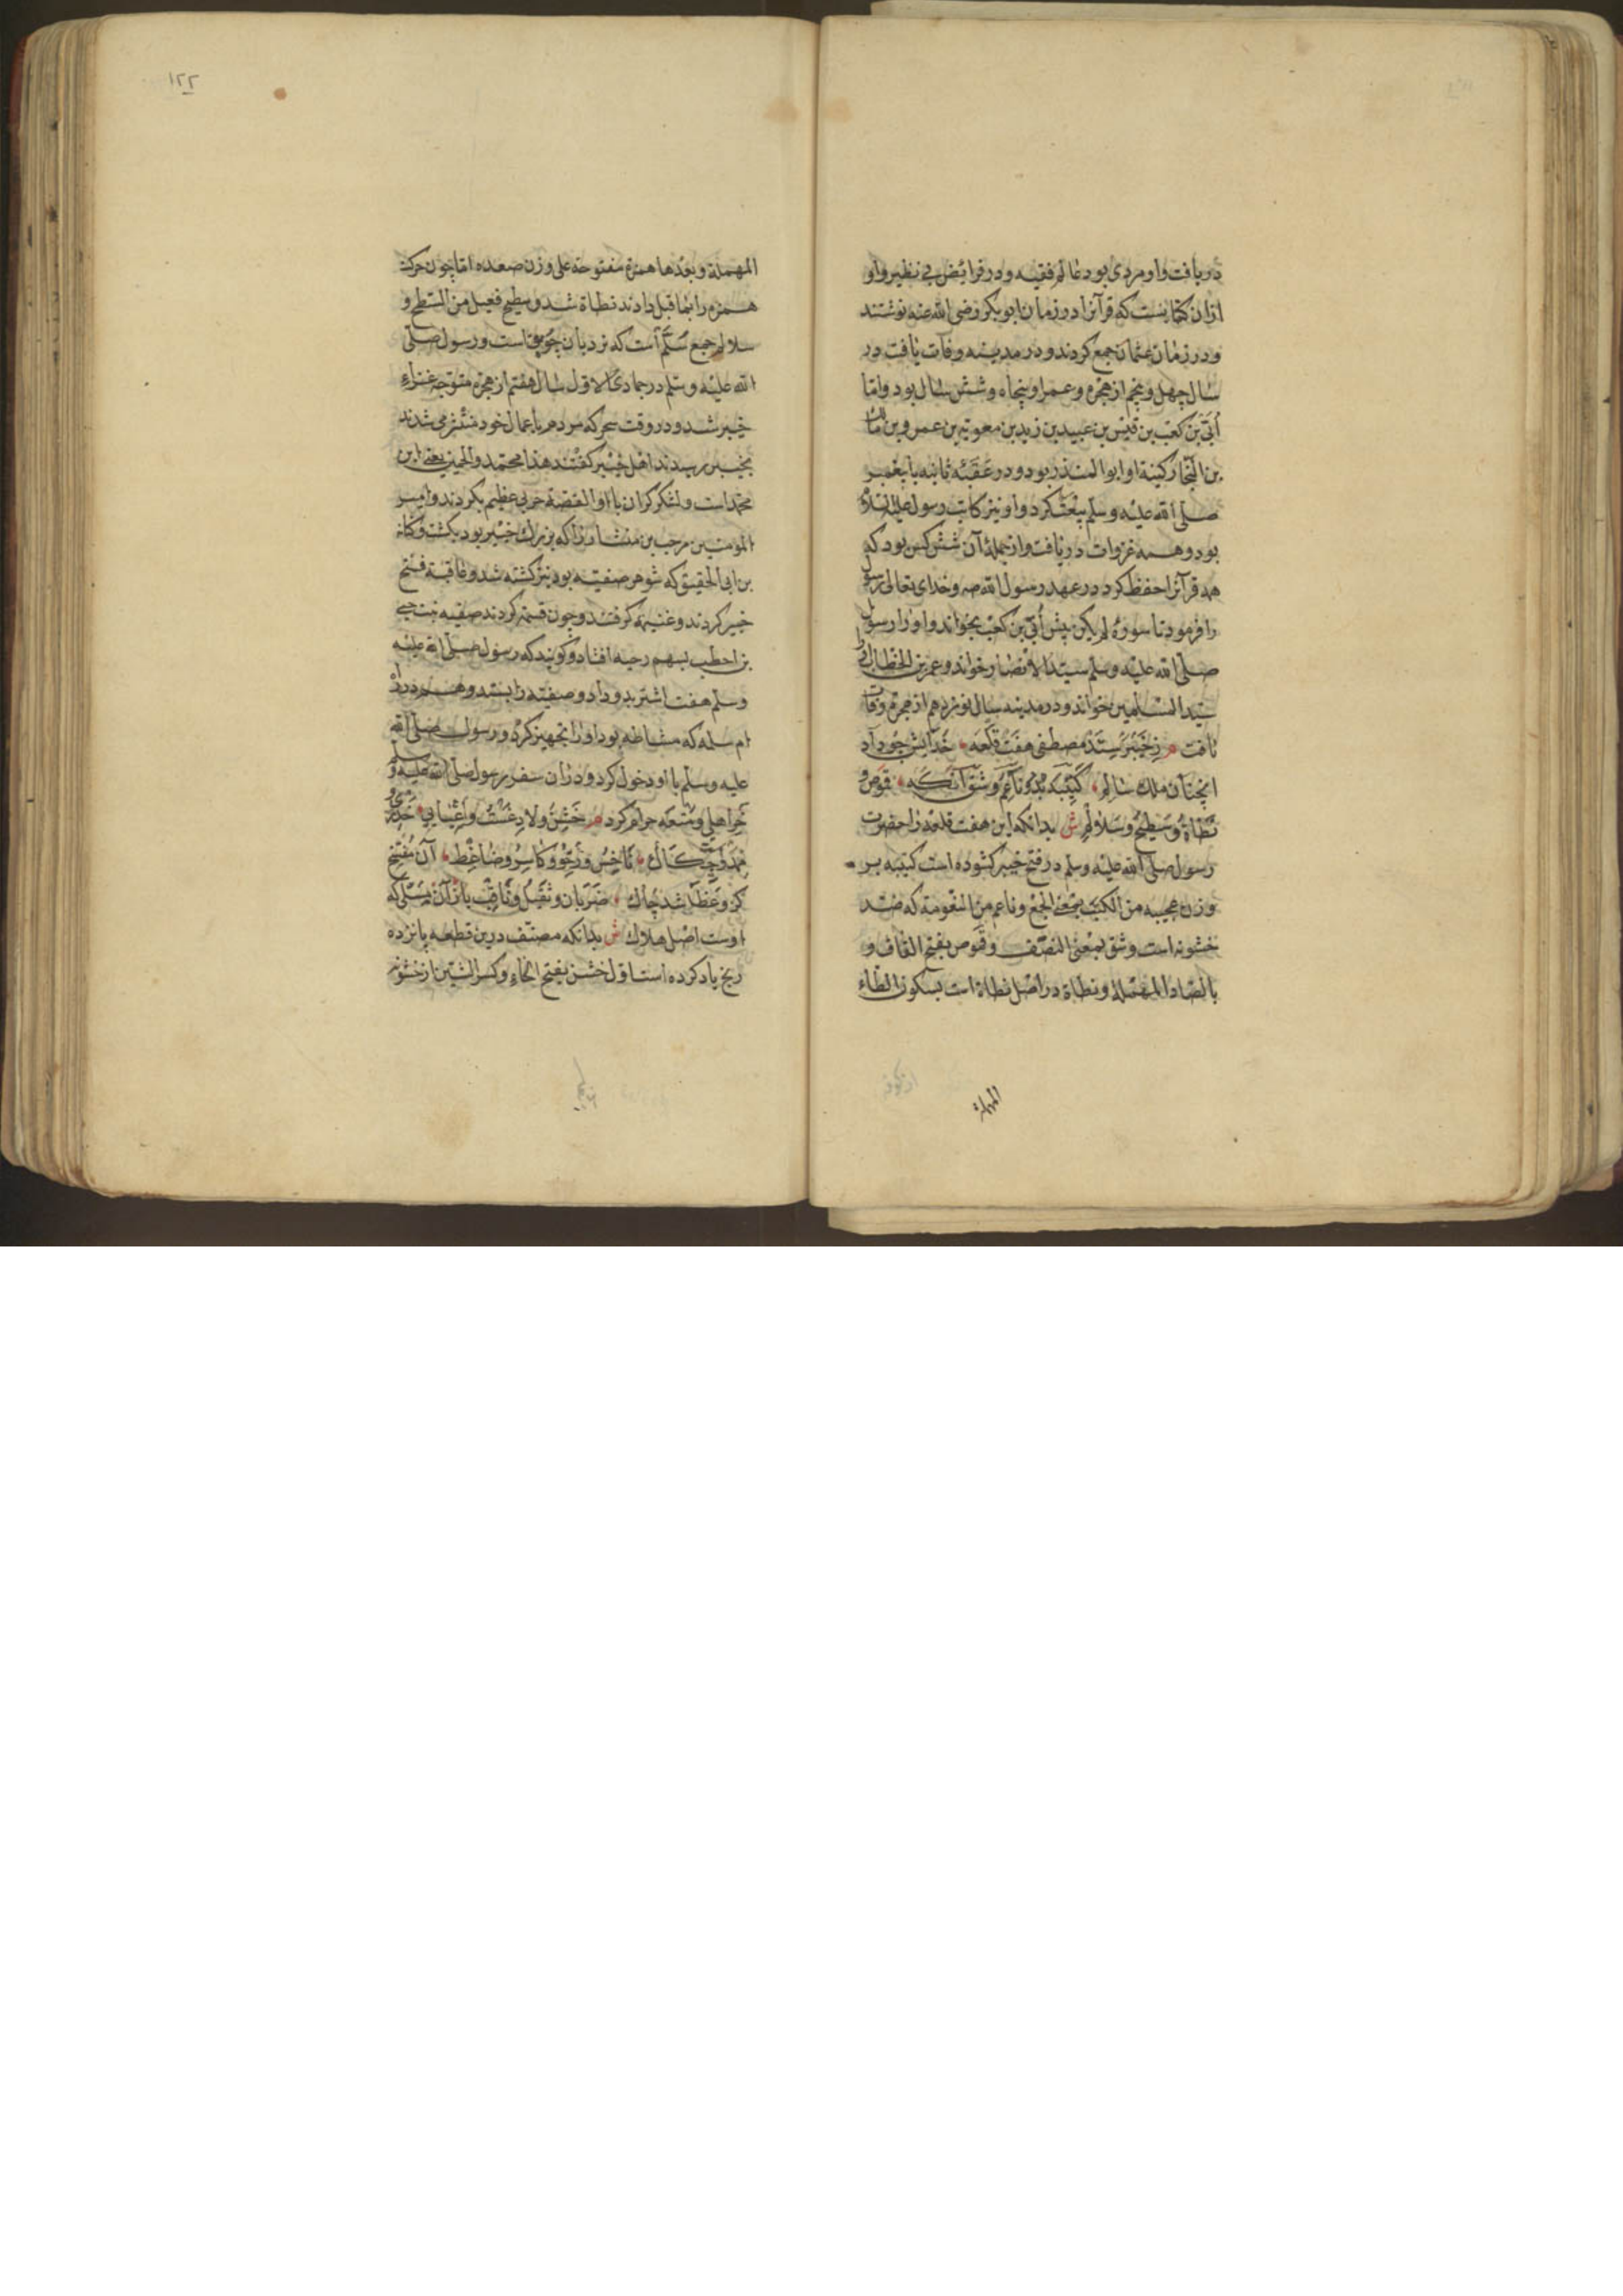 دریافت و او مردی بود عالم فقیه و در فرائض بی نظیر و او
ازان کتابنست که قرآنرا در زمان ابوبکر رضی الله عنه نوشتند
و در زمان عثمان جمع کردند و در مدینه وفات یافت در
سال چهل و پنجم از هجره و عمر او پنجاه و شش سال بود و اما
اُبَیّ بن کعب بن قیس بن عبید بن زید بن معویة بن عمرو بن مالک
بن النجّار کنیة او ابوالمنذر بود و در عَقَبَهٔ ثانیه با پیغمبر
صلی الله علیه وسلم بیعت کرد و او نیز کاتب رسول علیه السلام
بود و همه غزوات دریافت و از جملهٔ آن شش کس بود که
همه قرآنرا حفظ کرد در عهد رسول الله صه و خدای تعالی رسول
را فرمود تا سورهٔ لم یکن پیش اُبَیّ بن کعب بخواند و او را رسول
صلی الله علیه وسلم سید الانصار خواند و عمر بن الخطاب او را
سید المسلمین خواند و در مدینه سال نوزدهم از هجره وفات
یافت م ز خَیْبَر سِتَدْ مصطفی هفت قلعه خدایش چو داد
انچنان ملک سالم کَتِیْبَه و ناعِم و شَقّ آنکه قَوص و
نَطاة و سَطیح و سَلالِم ش بدانکه این هفت قلعه را حضرت
رسول صلی الله علیه وسلم در فتح خیبر کشوده است کتیبه بر
وزن عجیبه من الکتیب بمعنی الجمع و ناعم من النعومة که ضد
خشونه است و شق بمعنی النصف و قَوص بفتح القاف و
بالصاد المهملة و نطاة در اصل نطاة است بسکون الطاء
المهملة
۱۲۲
المهملة و بعدها همزة مفتوحة علی وزن صعده اما چون حرکت
همزه را بما قبل دادند نطاة شد و سطیح فعیل من السطح و
سلالم جمع سُلَّم است که نردبان چوبین است و رسول صلی
الله علیه وسلم در جمادی الاول سال هفتم از هجره متوجه غزاء
خیبر شد و در وقت سحر که مردم باعمال خود منتشر می شدند
بخیبر رسیدند اهل خیبر گفتند هذا محمد والخمیس یعنی این
محمد است و لشکر گران با او القصه حربی عظیم بکردند و امیر
المؤمنین مرحب بن منشا را که بزرگ خیبر بود بکشت و کنانه
بن ابی الحقیق که شوهر صفیه بود نیز کشته شد و عاقبة فتح
خیبر کردند و غنیمة گرفتند و چون قسمة کردند صفیه بنت حیی
بن اخطب بسهم دحیه افتاد و گویند که رسول صلی الله علیه
وسلم هفت اشتر بدو داد و صفیه را بستد و هم در راه
ام سلمه که مشاطه بود او را تجهیز کرد و رسول صلی الله
علیه وسلم با او دخول کرد و دران سفر رسول صلی الله علیه وسلم
خر اهلی و مُتعه حرام کرد م خَشِن و لاذِع و اِعیایی خَدَری
مُمَدِّد و حِکّاک ناخِس و رِخْو و کاسِر و ضاغِط آن مُفَسِّخ
کز و عَظا شد چاک ضَرَبان و ثَقیل و ثاقِب باز آن مِسَلّی که
اوست اصل هلاک ش بدانکه مصنف درین قطعه پانزده
رنج یاد کرده است اول خشن بفتح الخاء و کسر الشین از خشونة